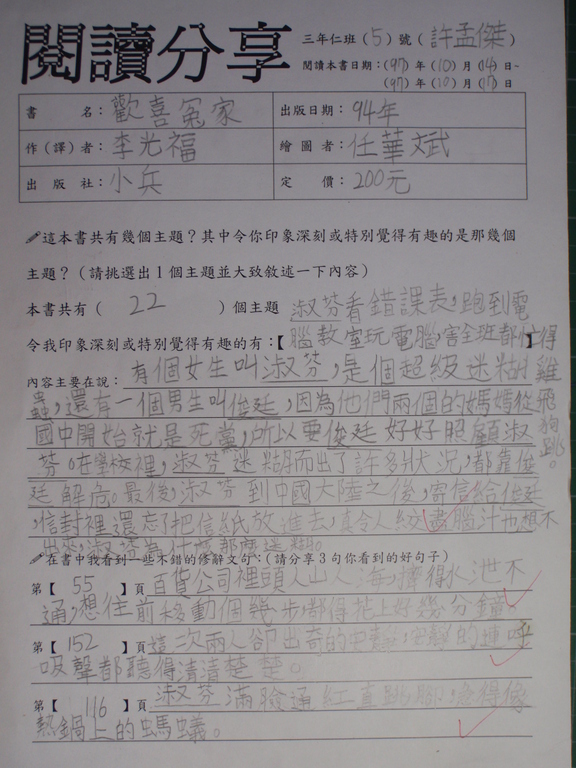 閱讀分享
三年仁班(5)號(許孟傑)
閱讀本書日期:(97)年(10)月(14)日~
(97)年(10)月(17)日
書名:歡喜冤家
出版日期:94年
作(譯)者:李光福
繪圖者:任華斌
出版社:小兵
定價:200元
這本書共有幾個主題?其中令你印象深刻或特別覺得有趣的是那幾個
主題?(請挑選出1個主題並大致敘述一下內容)
本書共有( 22 )個主題
淑芬看錯課表,跑到電
令我印象深刻或特別覺得有趣的有:【腦教室玩電腦,害全班都忙】得
內容主要在說:有個女生叫淑芬,是個超級迷糊雞
蟲,還有一個男生叫俊廷,因為他們兩個的媽媽從飛
國中開始就是死黨,所以要俊廷好好照顧淑狗
芬。在學校裡,淑芬迷糊而出了許多狀況,都靠俊跳。
廷解危。最後,淑芬到中國大陸之後,寄信給俊廷
,信封裡還忘了把信紙放進去,真令人絞盡腦汁也想不
出來,淑芬為什麼那麼迷糊。
在書中我看到一些不錯的修辭文句:(請分享3句你看到的好句子)
第【55】頁百貨公司裡頭人山人海,擠得水泄不
通,想往前移動個幾步,都得花上好幾分鐘
第【152】頁這次兩人卻出奇的安靜,安靜的連呼
吸聲都聽得清清楚楚。
第【116】頁淑芬滿臉通紅直跳腳,急得像
熱鍋上的螞蟻。